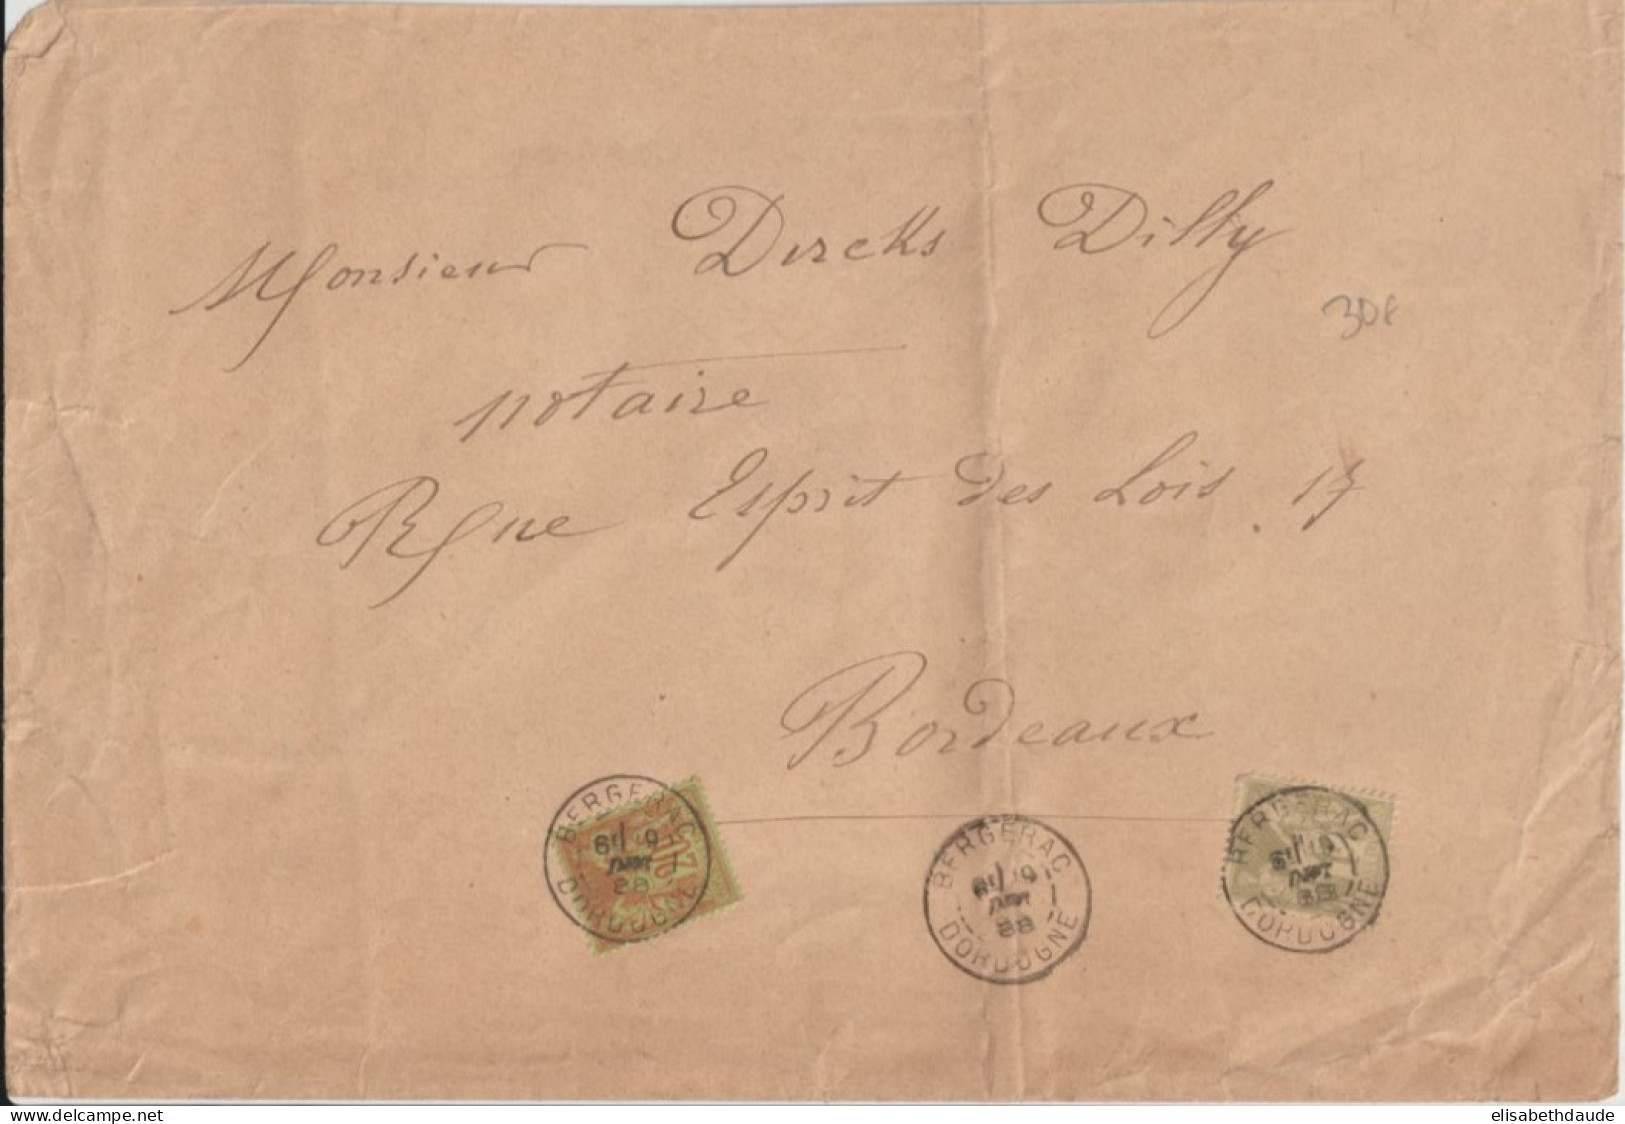 Monsieur Dircks Dilhy
30€
notaire
Rue Esprit des Lois. 17
Bordeaux
BERGERAC
DORDOGNE
BERGERAC
88
DORDOGNE
BERGERAC
DORDOGNE
www.delcampe.net
elisabethdaude